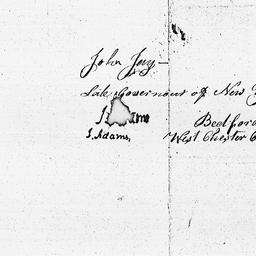 John Jay —
Late Governour of New
Bedford
J. Adams,
West Chester C